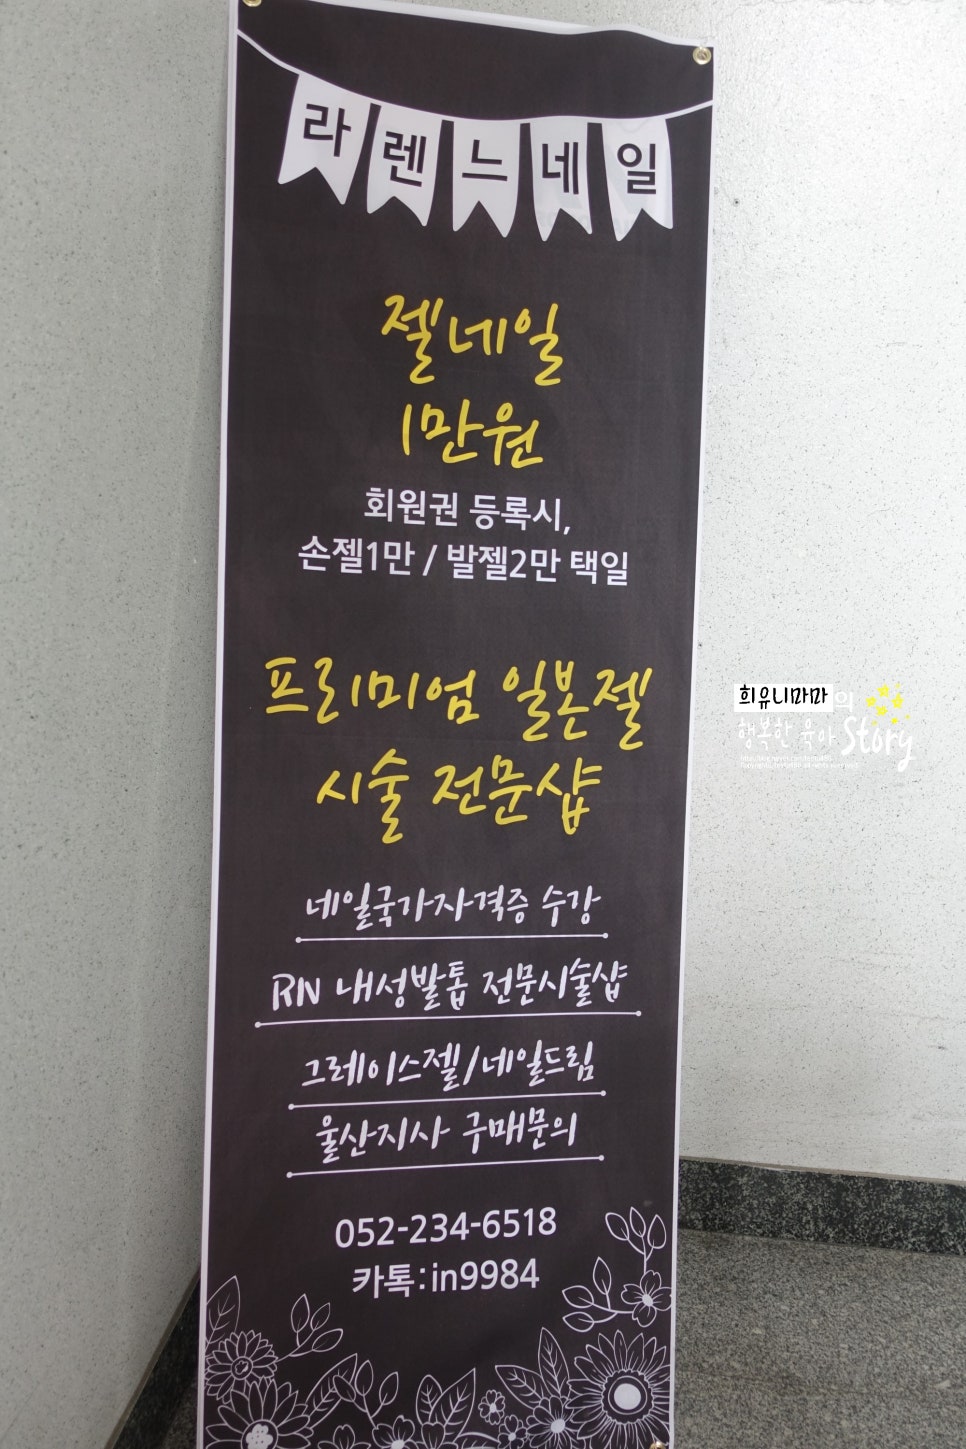 라렌느네일
젤네일
1만원
회원권 등록시,
손젤1만 / 발젤2만 택일
프리미엄 일본젤
시술 전문샵
네일국가자격증 수강
RN 내성발톱 전문시술샵
그레이스젤/네일드림
울산지사 구매문의
052-234-6518
카톡:in9984
희유니마마의
행복한 육아 Story